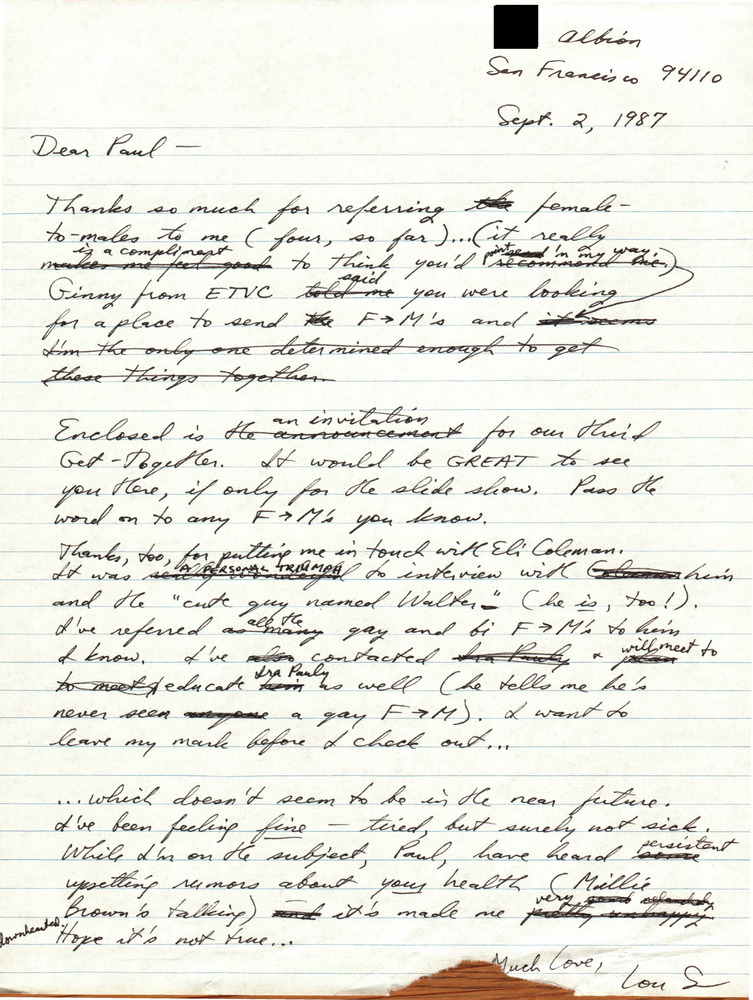 Albion
San Francisco 94110
Sept. 2, 1987
Dear Paul —
Thanks so much for referring the female-
to-males to me (four, so far)... (it really
is a compliment
makes me feel good to think you'd point 'em my way.
send
recommend me.)
said
Ginny from ETVC told me you were looking
for a place to send the F→M's and it seems
I'm the only one determined enough to get
these things together.
an invitation
Enclosed is the announcement for our third
Get-Together. It would be GREAT to see
you there, if only for the slide show. Pass the
word on to any F→M's you know.
Thanks, too, for putting me in touch with Eli Coleman.
A PERSONAL TRIUMPH
It was really wonderful to interview with Coleman him
and the "cute guy named Walter" (he is, too!).
all the
I've referred as many gay and bi F→M's to him
I know. I've also contacted Ira Pauly & will meet to
plan
Ira Pauly
to meet/educate him as well (he tells me he's
never seen anyone a gay F→M). I want to
leave my mark before I check out...
...which doesn't seem to be in the near future.
I've been feeling fine — tired, but surely not sick.
persistent
While I'm on the subject, Paul, have heard some
upsetting rumors about your health (Millie
very
Brown's talking) and it's made me pretty unhappy.
downhearted.
Hope it's not true...
Much Love,
Lou S